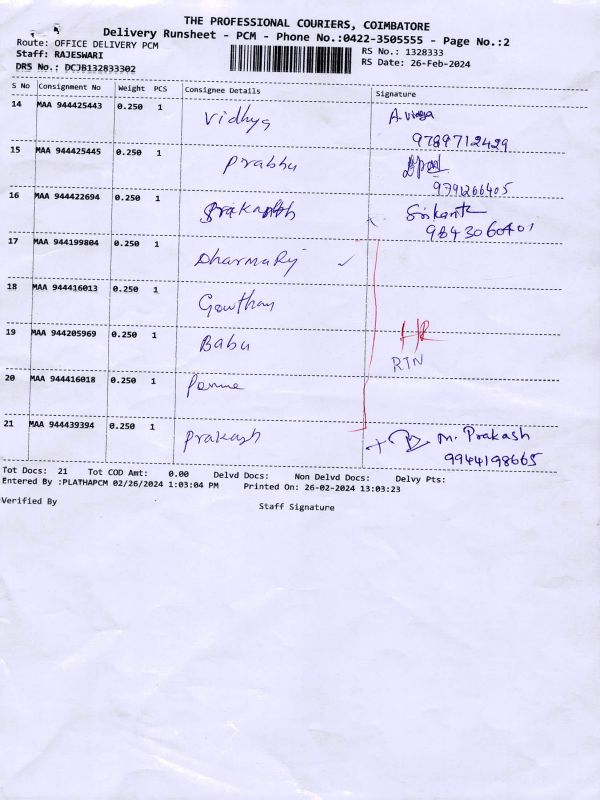 THE PROFESSIONAL COURIERS, COIMBATORE
Delivery Runsheet - PCM - Phone No.:0422-3505555 - Page No.:2
Route: OFFICE DELIVERY PCM RS No.: 1328333
Staff: RAJESWARI RS Date: 26-Feb-2024
DRS No.: DCJB132833302
S No Consignment No Weight PCS Consignee Details Signature
14 MAA 944425443 0.250 1 Vidhya
9789712429
15 MAA 944425445 0.250 1 Prabhu
9791266405
16 MAA 944422694 0.250 1 Srikanth
9843060401
17 MAA 944199804 0.250 1 DharmaRj ✓
18 MAA 944416013 0.250 1 Gowtham
19 MAA 944205969 0.250 1 Babu
RTN
20 MAA 944416018 0.250 1
21 MAA 944439394 0.250 1 Prakash M. Prakash
9944198665
Tot Docs: 21 Tot COD Amt: 0.00 Delvd Docs: Non Delvd Docs: Delvy Pts:
Entered By :PLATHAPCM 02/26/2024 1:03:04 PM Printed On: 26-02-2024 13:03:23
Verified By Staff Signature